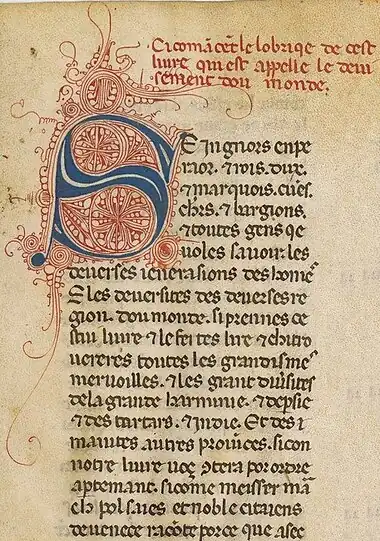 Ci comācēt le lobrique de cest
liure qui est appelle le deui
sement dou monde.
SEingnors enpe
raor. ⁊ rois. dux.
⁊ marquois. cues.
chrs. ⁊ bargions.
⁊ toutes gens qe
uoles sauoir. les
deuerses ienerasions des home˜
E les deuersites des deuerses re
gion dou monde. si prennes ce
stui liure ⁊ le feites lire ⁊ chi tro
uereres toutes les grandismes
meruoilles. ⁊ les grant diu'sites
de la grande harminie. ⁊ de psie
⁊ des tartars. ⁊ indie. Et des i
maintes autres prouīces. si con
notre liure uoς ɔtera por ordre
aptemant. sicome meisser mā
ch pol saies et noble citaiens
de uenece raconte por ce que a sec